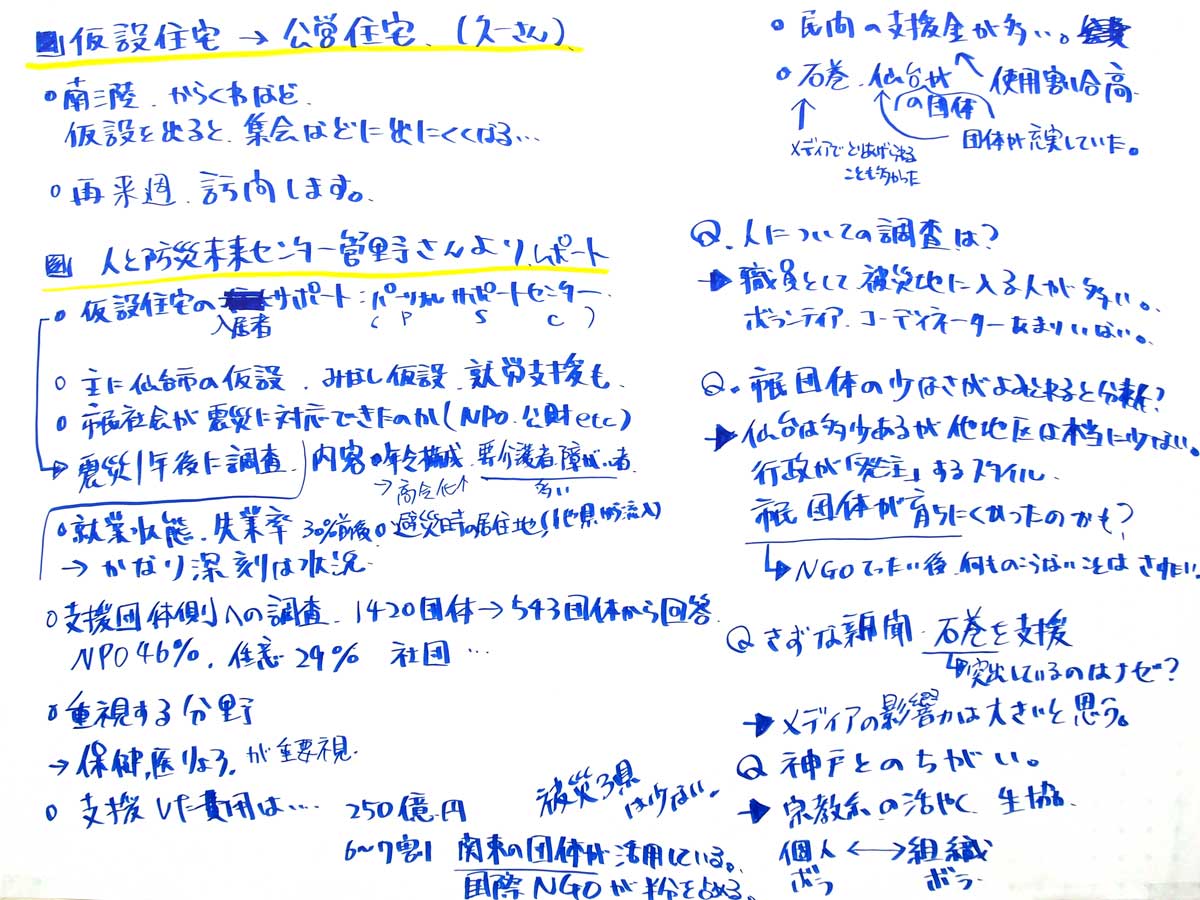 仮設住宅→公営住宅、(久一さん)、
南三陸、からくわなど、
仮設を出ると、集会などに出にくくなる…
再来週、訪問します。
人と防災未来センター菅野さんよりレポート
仮設住宅の サポート:パーソナルサポートセンター
入居者 (P S C)
主に仙台市の仮設、みなし仮設、就労支援も、
市民社会が震災に対応できたのか(NPO、公財etc)
→震災1年後に調査 内容 年令構成、要介護者、障がい者、
→高令化↑ 多い
就業状態、失業率 30%前後 避災時の居住地(他県から流入)
→かなり深刻な状況
支援団体側への調査、1420団体→543団体から回答
NPO 46%、任意 29% 社団…
重視する分野
→保健、医りょう、が重要視
支援した費用は… 250億円
被災3県は少ない、
6〜7割 関東の団体が活用している。
国際NGOが半分を占める。
民間の支援金が多い。
石巻、仙台が 使用割合高
の団体
団体が充実していた。
メディアでとりあげられる
ことも多かった
Q、人についての調査は?
→職員として被災地に入る人が多い。
ボランティア、コーディネーターあまりいない。
Q、市民団体の少なさがよみとれると
→仙台は多少あるが他地区は本当に少ない。
行政が「発注」するスタイル
市民団体が育ちにくかったのかも?
→NGOてったい後、何ものこらないことは さけたい。
Q きずな新聞、石巻を支援
→突出しているのはナゼ?
→メディアの影響力は大きいと思う。
Q 神戸とのちがい。
→宗教系の活やく 生協、
個人←→組織
ボラ ボラ